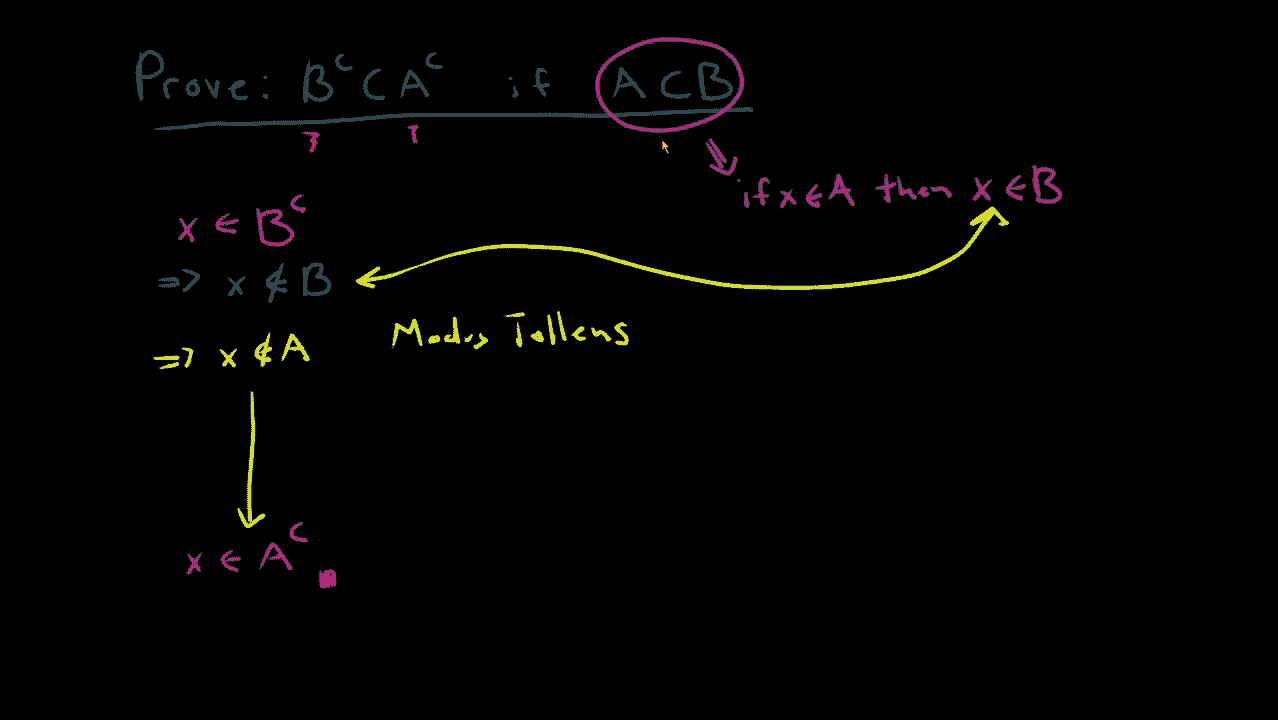 Prove: Bᶜ ⊂ Aᶜ if A ⊂ B
if x ∈ A then x ∈ B
x ∈ Bᶜ
⇒ x ∉ B
⇒ x ∉ A
Modus Tollens
x ∈ Aᶜ ∎